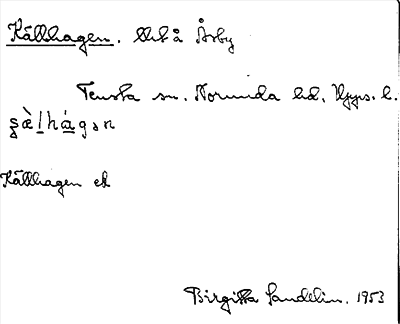 Källhagen. Utå Årby
Tensta sn. Norunda hd, Upps. l.
ʂæ̀lhágən
Källhagen ek
Birgitta Sandelin. 1953